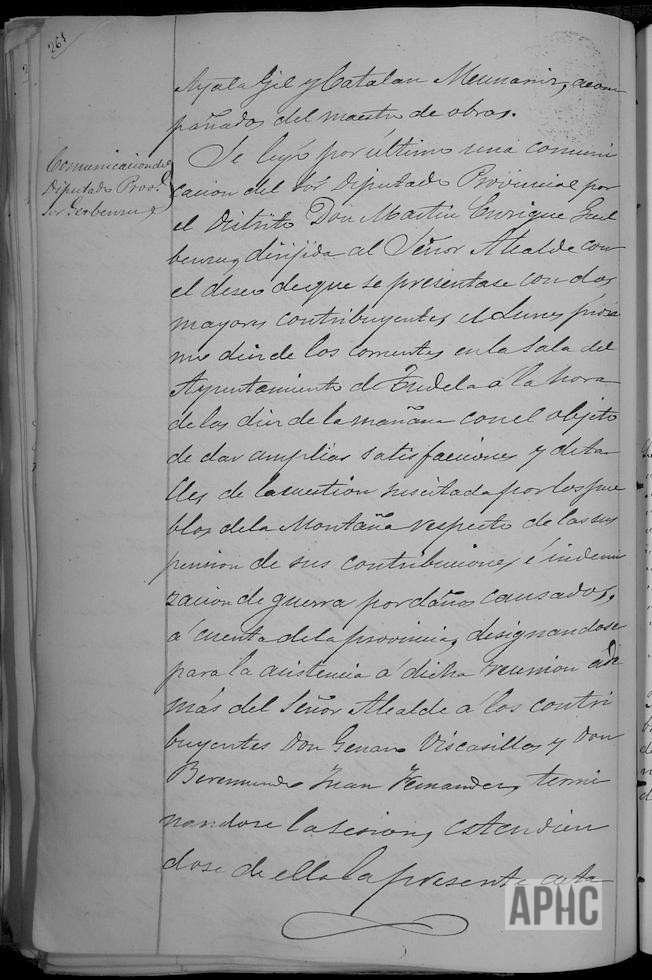 261
Ayala Gil y Catalan Meunarriz, acom
pañados del maestro de obras.
Comunicacion del
Diputado Prov.l
Sor Gerbenzu
Se leyó por último una comuni
cacion del Sor Diputado Provincial por
el Distrito Don Martin Enrique Guel
benzu, dirijida al Señor Alcalde con
el deseo de que se presentase con dos
mayores contribuyentes el Lunes próxi
mo diez de los corrientes en la Sala del
Ayuntamiento de Tudela á la hora
de las diez de la mañana con el objeto
de dar amplias satisfacciones y deta
lles de la cuestion suscitada por los pue
blos de la Montaña respecto de la sus
pension de sus contribuciones é indemni
zacion de guerra por daños causados,
á cuenta de la provincia, designandose
para la asistencia á dicha reunion ade
más del Señor Alcalde á los contri
buyentes Don Genaro Viscasillas y Don
Beremundo Juan Fernandez, termi
nandose la sesion, estendien
dose de ella la presente acta
APHC